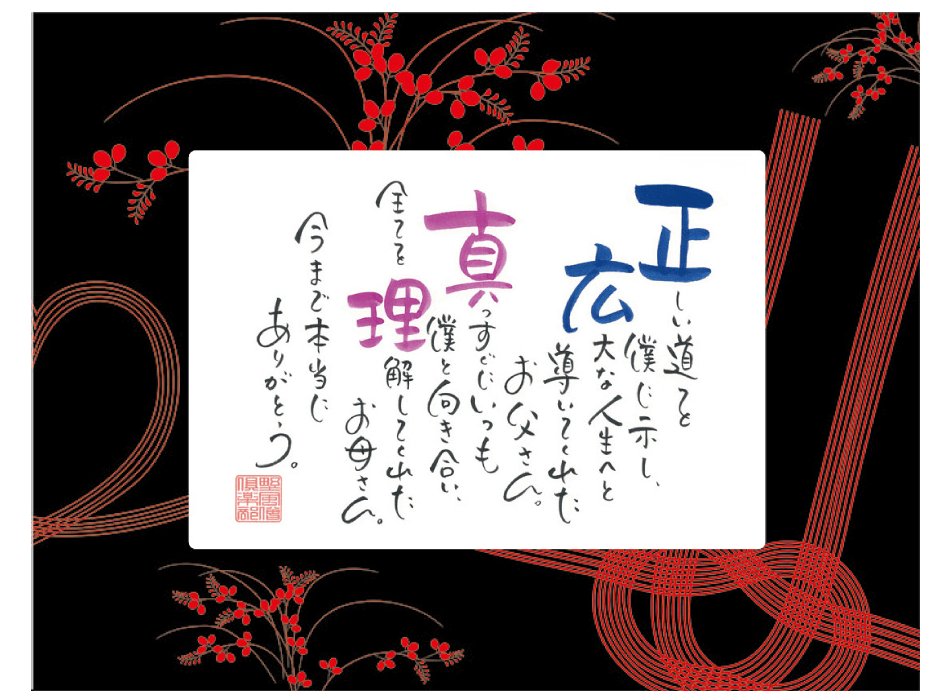 正しい道を
僕に示し、
広大な人生へと
導いてくれた
お父さん。
真っすぐにいつも
僕と向き合い、
全てを理解してくれた
お母さん。
今まで本当に
ありがとう。
倶楽部